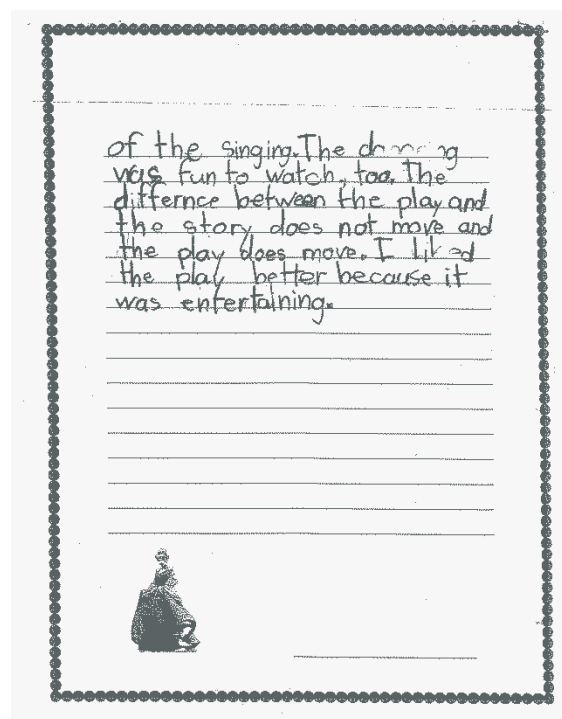 of the singing. The dancing
was fun to watch, too. The
differnce between the play and
the story does not move and
the play does move. I liked
the play better because it
was entertaining.